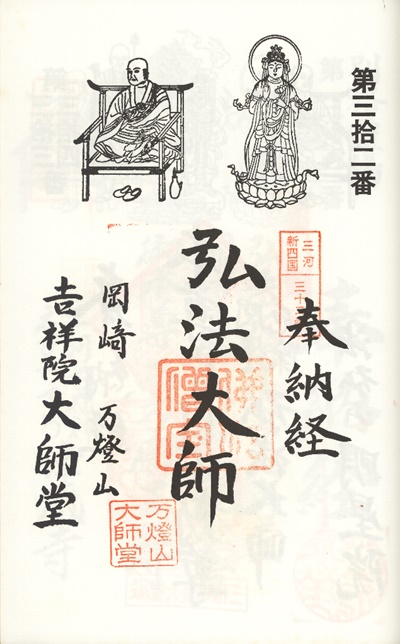 第三拾二番
奉納経
三河
新四国
三十
弘法大師
佛法僧宝
岡崎
万燈山
吉祥院大師堂
万燈山
大師堂